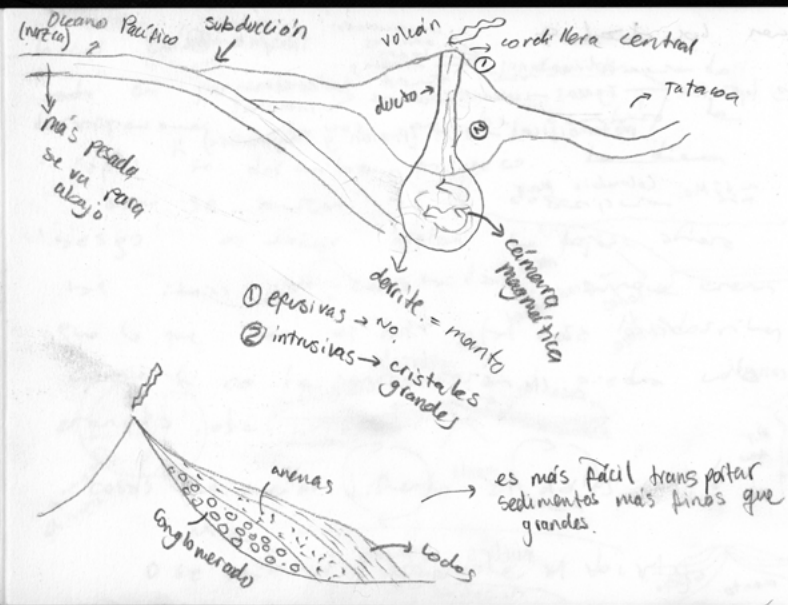 Oceano Pacífico
(nazca)
subducción
volcán
cordillera central
①
ducto
②
Tatacoa
más pesada
se va para
abajo
cámara
magmática
derrite. = manto
① efusivas → No.
② intrusivas → cristales
grandes
arenas
conglomerado
Lodos
es más fácil transportar
sedimentos más finos que
grandes.